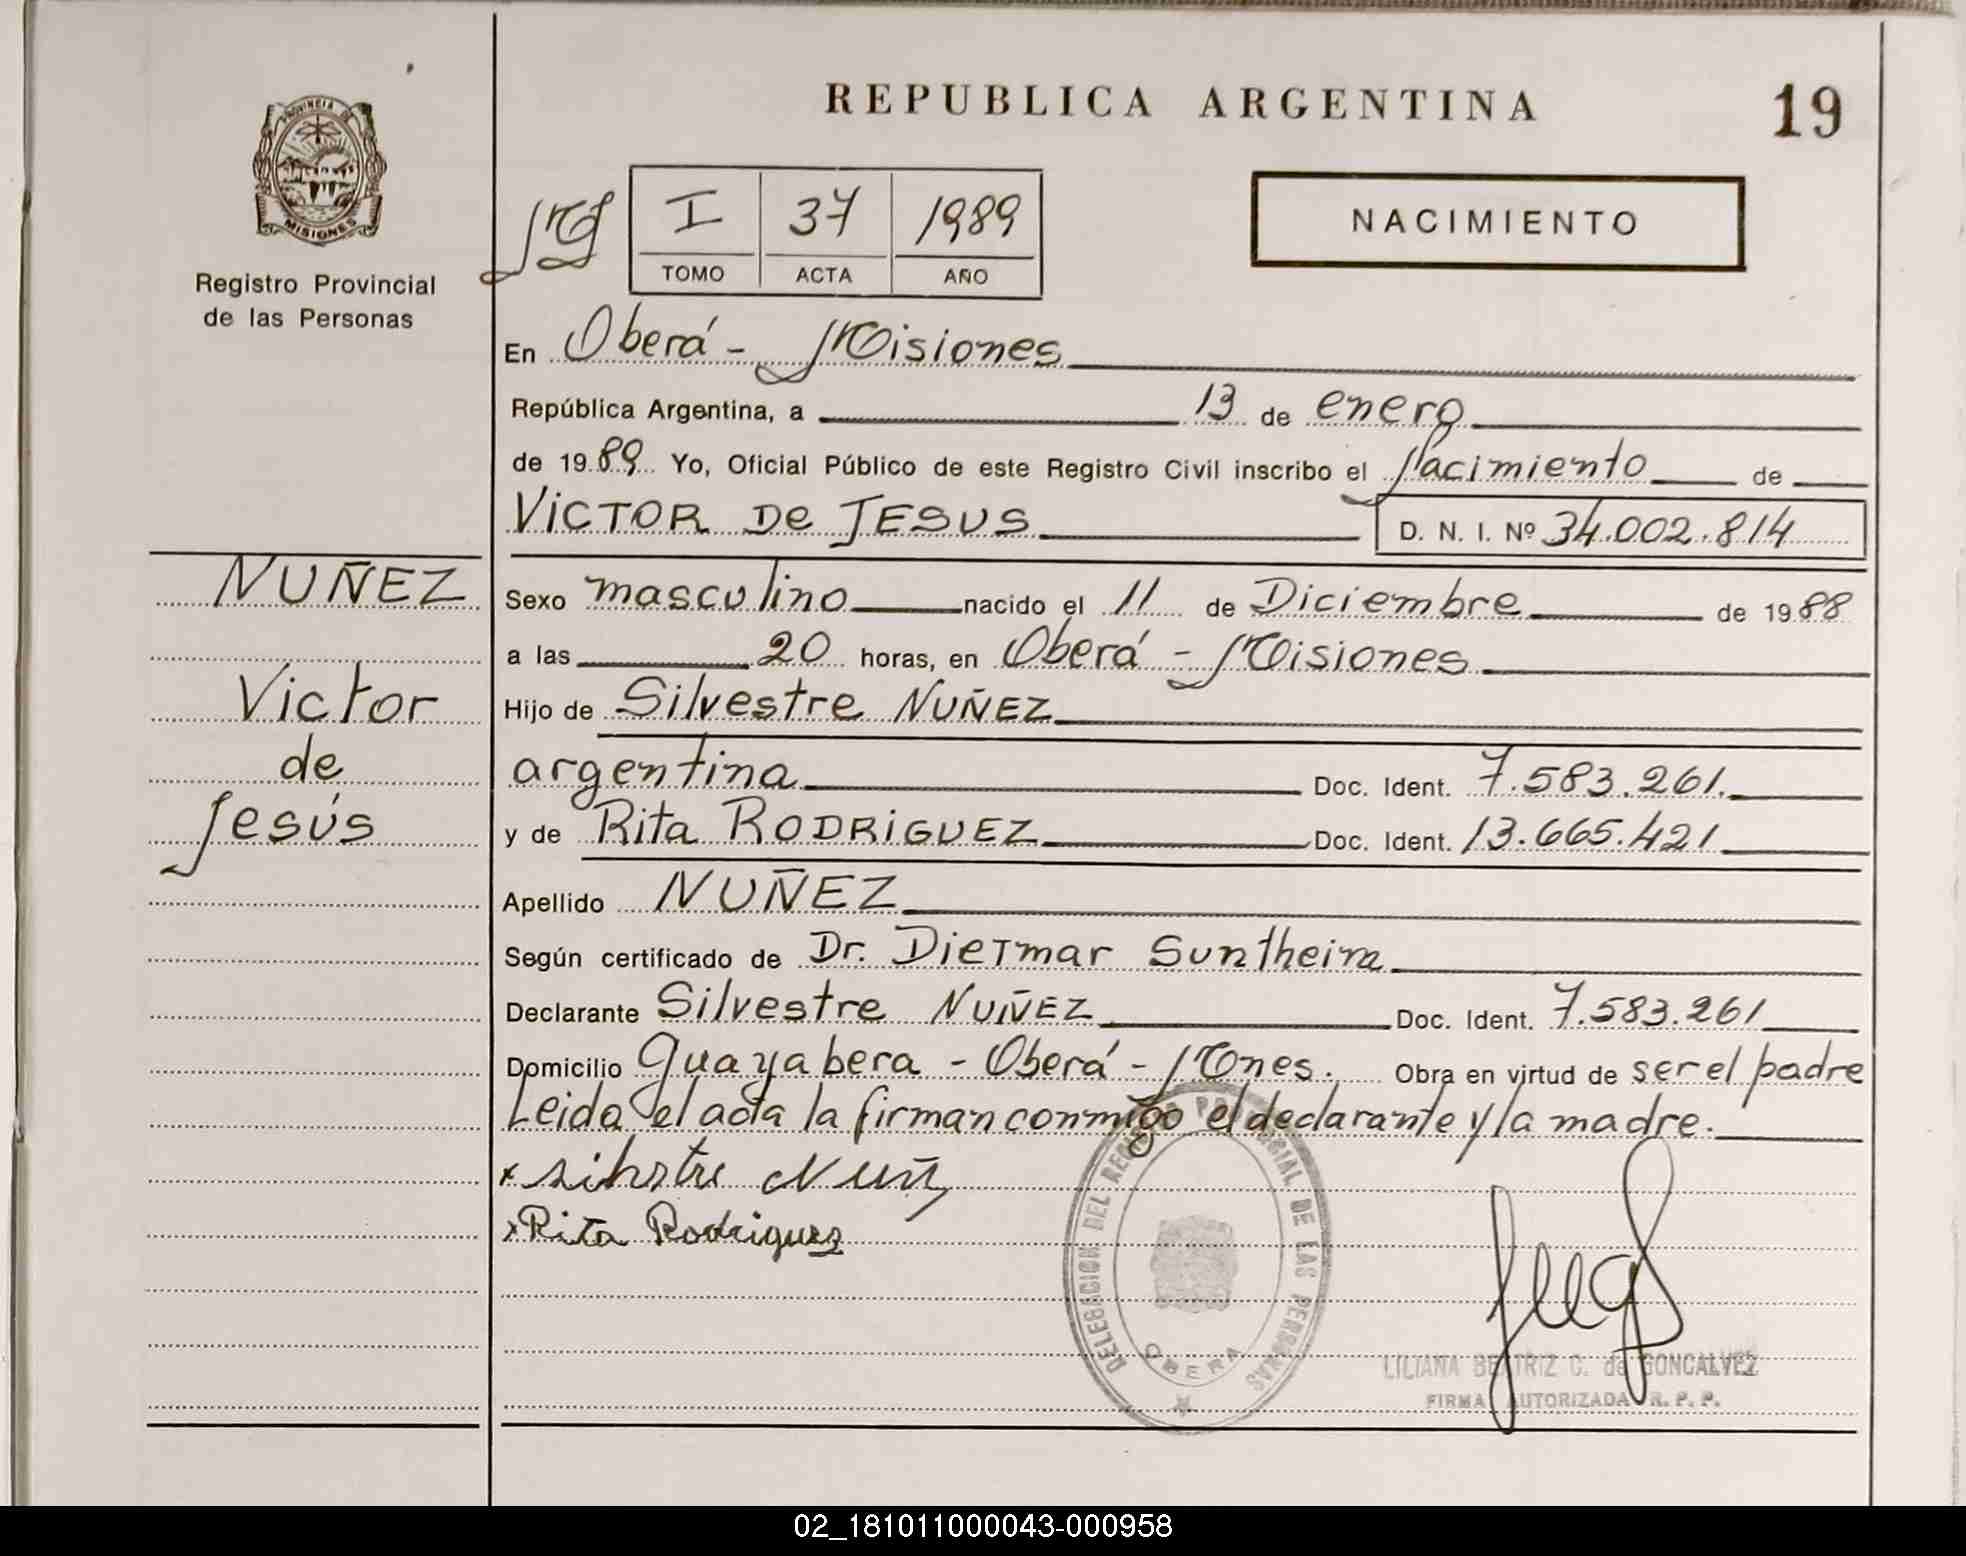 REPUBLICA ARGENTINA
19
PROVINCIA DE
MISIONES
Registro Provincial
de las Personas
I 37 1989
TOMO ACTA AÑO
NACIMIENTO
En Oberá - Misiones
República Argentina, a 13 de enero
de 1989 Yo, Oficial Público de este Registro Civil inscribo el Nacimiento de
VICTOR De JESUS D. N. I. Nº 34.002.814
NUÑEZ
Victor
de
Jesús
Sexo masculino nacido el 11 de Diciembre de 1988
a las 20 horas, en Oberá - Misiones
Hijo de Silvestre NUÑEZ
argentina Doc. Ident. 7.583.261.
y de Rita RODRIGUEZ Doc. Ident. 13.665.421
Apellido NUÑEZ
Según certificado de Dr. Dietmar Suntheim
Declarante Silvestre NUÑEZ Doc. Ident. 7.583.261
Domicilio Guayabera - Oberá - Mnes. Obra en virtud de ser el padre
Leida el acta la firman conmigo el declarante y la madre.
x Silvstre Nuñz
x Rita Rodriguez
DELEGACION DEL REGISTRO PROVINCIAL DE LAS PERSONAS
OBERA
LILIANA BEATRIZ C. de GONCALVEZ
FIRMA AUTORIZADA R. P. P.
02_181011000043-000958